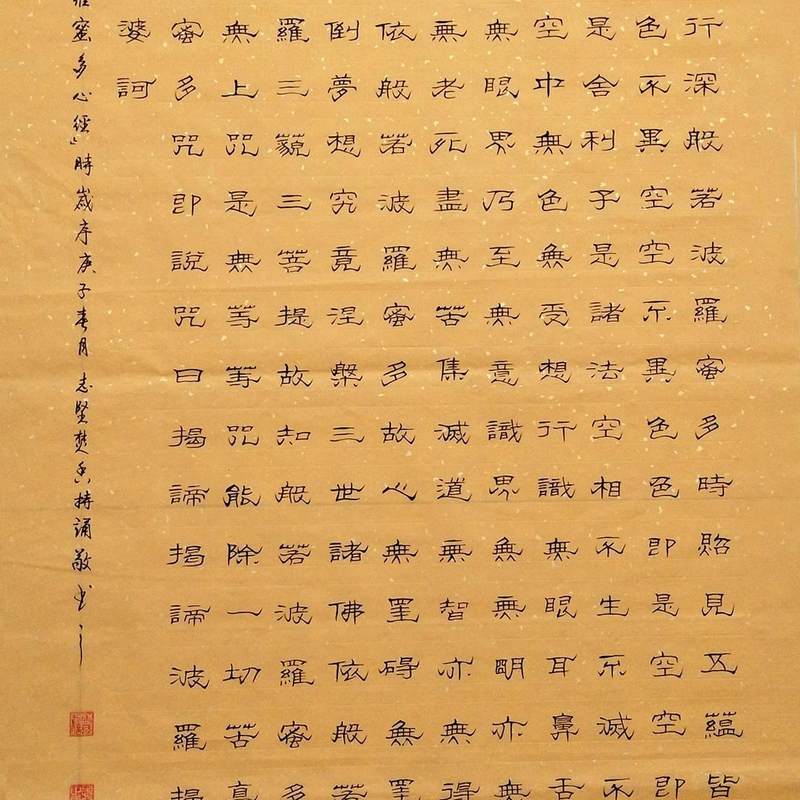 行深般若波羅蜜多時照見五蘊皆
色不異空空不異色色即是空空即
是舍利子是諸法空相不生不滅不
空中無色無受想行識無眼耳鼻舌
無眼界乃至無意識界無無明亦無
無老死盡無苦集滅道無智亦無得
依般若波羅蜜多故心無罣礙無罣
倒夢想究竟涅槃三世諸佛依般若
羅三藐三菩提故知般若波羅蜜多
無上咒是無等等咒能除一切苦真
蜜多咒即說咒曰揭諦揭諦波羅揭
婆訶
羅蜜多心經」時歲序庚子春月 志賢焚香持誦敬书之